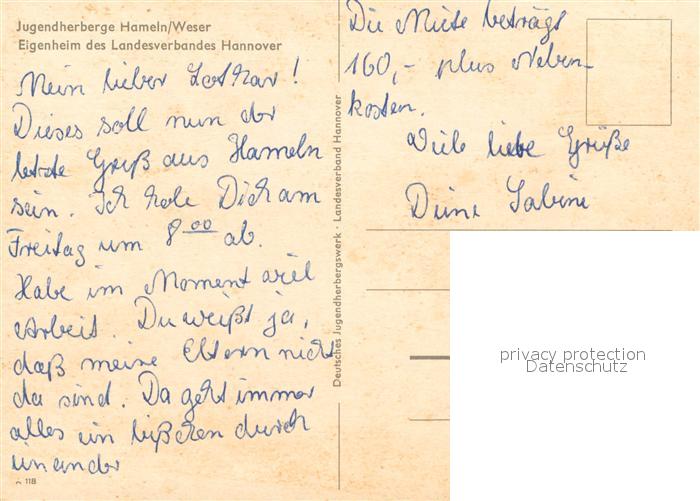 Jugendherberge Hameln/Weser
Eigenheim des Landesverbandes Hannover
Mein lieber Lothar!
Dieses soll nun der
letzte Gruß aus Hameln
sein. Ich hole Dich am
Freitag um 8 00 ab.
Habe im Moment viel
Arbeit. Du weißt ja,
daß meine Eltern nicht
da sind. Da geht immer
alles ein bißchen durch
einander
118
Deutsches Jugendherbergswerk · Landesverband Hannover
Die Miete beträgt
160,- plus Neben-
kosten.
Viele liebe Grüße
Deine Sabine
privacy protection
Datenschutz